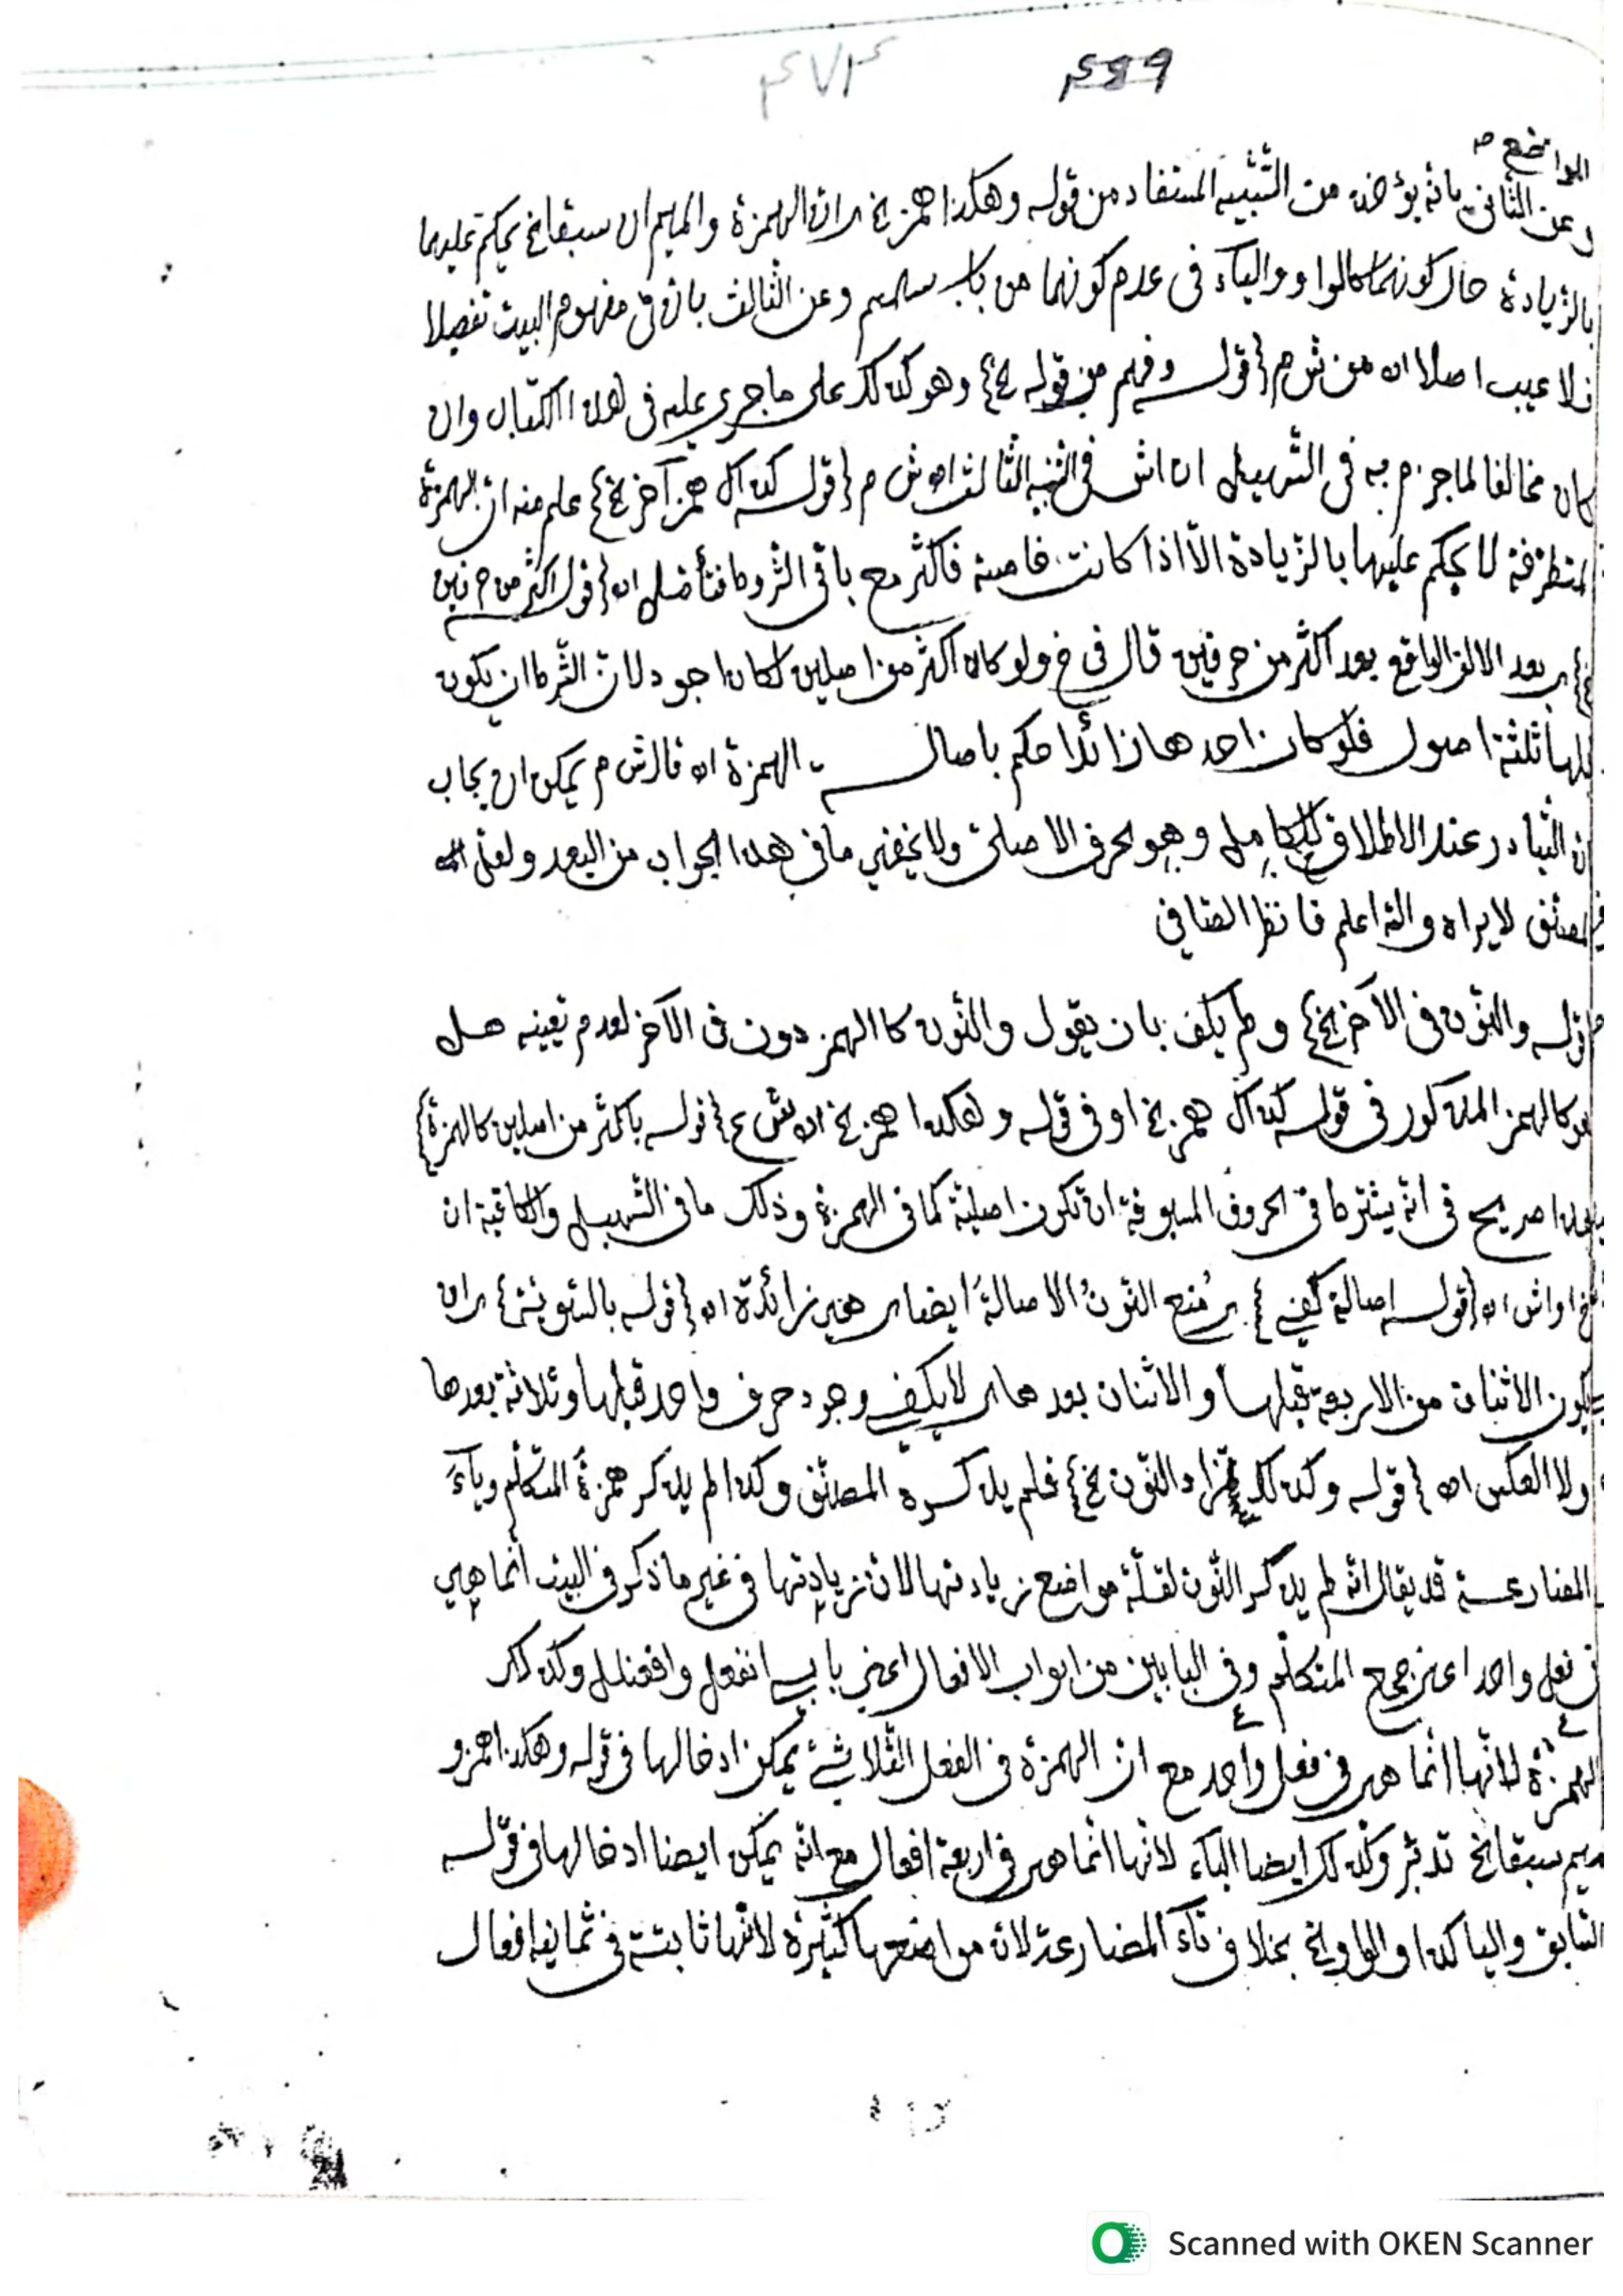 ٤٧٤ ٤٦٩
المواضع
وعن الثانى بانه يؤخذ من التشبيه المستفاد من قوله وهكذا همز الخ اى ان الهمزة والميم ان سبقا الخ يحكم عليهما
بالزيادة حال كونهما كالواو والياء فى عدم كونهما من باب سمسم وعن الثالث بان فى مفهوم البيت تفصيلا
فلا عيب اصلا اه من ش م {قوله وفهم من قوله الخ} وهو كذلك على ما جرى عليه فى هذا الكتاب وان
كان مخالفا لما جزم به فى التسهيل اه اش فى التنبيه الثالث اه ش م {قوله كذاك همز آخر الخ} علم منه ان الهمزة
المتطرفة لا يحكم عليها بالزيادة الا اذا كانت خامسة فاكثر مع باقى الشروط فتأمل اه {قوله اكثر من حرفين
الخ} اى بعد الالف الواقع بعد اكثر من حرفين قال فى خ ولو كان اكثر من اصلين لكان اجود لان الشرط ان يكون
قبلها ثلثة اصول فلو كان احدها زائدا حكم باصالة الهمزة اه قال ش م يمكن ان يجاب
ان التبادر عند الاطلاق للكامل وهو الحرف الاصلى ولا يخفى ما فى هذا الجواب من البعد ولعل
المصنف لا يراه والله اعلم فانظر الصافى
قوله والنون فى الآخر الخ} ولم يكف بان يقول والنون كالهمز دون فى الآخر لعدم تعينه هل
هو كالهمز المذكور فى قوله كذاك همز الخ او فى قوله وهكذا همز الخ اه ش ع {قوله باكثر من اصلين كالهمزة}
هذا صريح فى انه يشترط فى الحروف المسبوقة ان تكون اصلية كما فى الهمزة وذلك ما فى التسهيل والكافية اه
خ اواش اه {قوله اصالة كفى} اى مُنع النونُ الاصالةَ ايضا اى هى زائدة اه {قوله بالتوسط} اى ان
يكون الاثنان من الاربعة قبلها والاثنان بعدها اى لا يكفى وجود حرف واحد قبلها وثلاثة بعدها
ولا العكس اه {قوله وكذلك تزاد النون الخ} فلم يذكره المصنف وكذا لم يذكر همزة المتكلم وياء
المضارعة قد يقال انه لم يذكر النون لقلة مواضع زيادتها لان زيادتها فى غير ما ذكر فى البيت انما هى
فى فعل واحد اعنى جمع المتكلم وفى البابين من ابواب الافعال اعنى بابى انفعل وافعنلل وكذلك
الهمزة لانها انما هى فى فعل واحد مع ان الهمزة فى الفعل الثلاثى يمكن ادخالها فى قوله وهكذا همز و
ميم سبقا الخ تدبر وكذلك ايضا الياء لانها انما هى فى اربعة افعال مع انه يمكن ايضا ادخالها فى قوله
السابق واليا كذا والواو الخ بخلاف تاء المضارعة لان مواضعها كثيرة لانها ثابتة فى ثمانية افعال
Scanned with OKEN Scanner